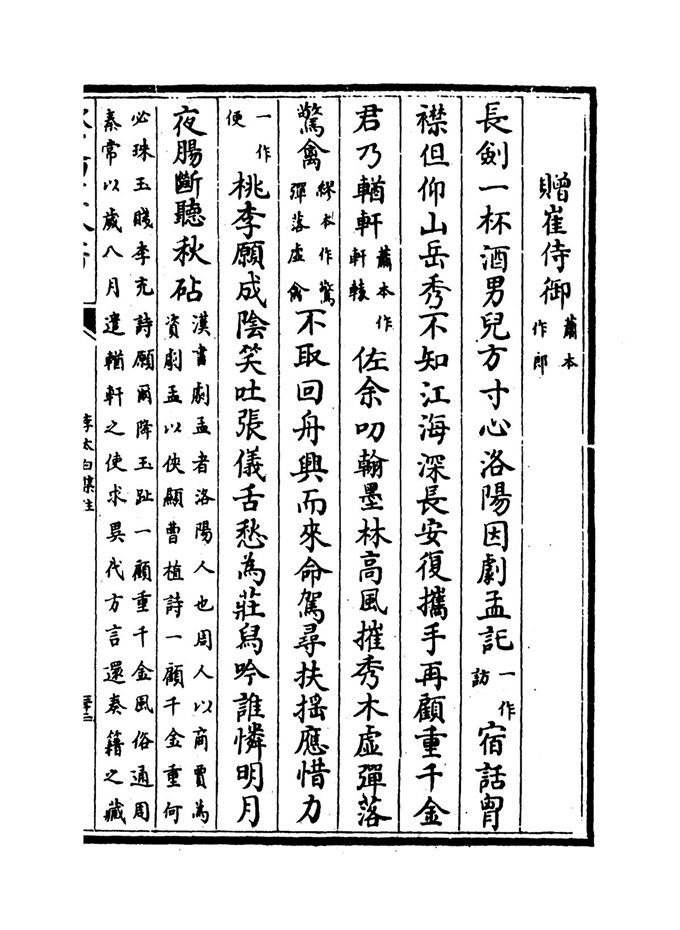 贈崔侍御蕭本作郎
長劍一杯酒男兒方寸心洛陽因劇孟託一作訪宿話胷
襟但仰山岳秀不知江海深長安復攜手再顧重千金
君乃輶軒蕭本作軒轅佐余叨翰墨林高風摧秀木虛彈落
驚禽繆本作驚彈落虛禽不取回舟興而來命駕尋扶搖應惜力
一作便桃李願成陰笑吐張儀舌愁為莊舄吟誰憐明月
夜腸斷聽秋砧漢書劇孟者洛陽人也周人以商賈為
資劇孟以俠顯曹植詩一顧千金重何
必珠玉賤李充詩願爾降玉趾一顧重千金風俗通周
秦常以歲八月遣輶軒之使求異代方言還奏籍之藏
李太白集注